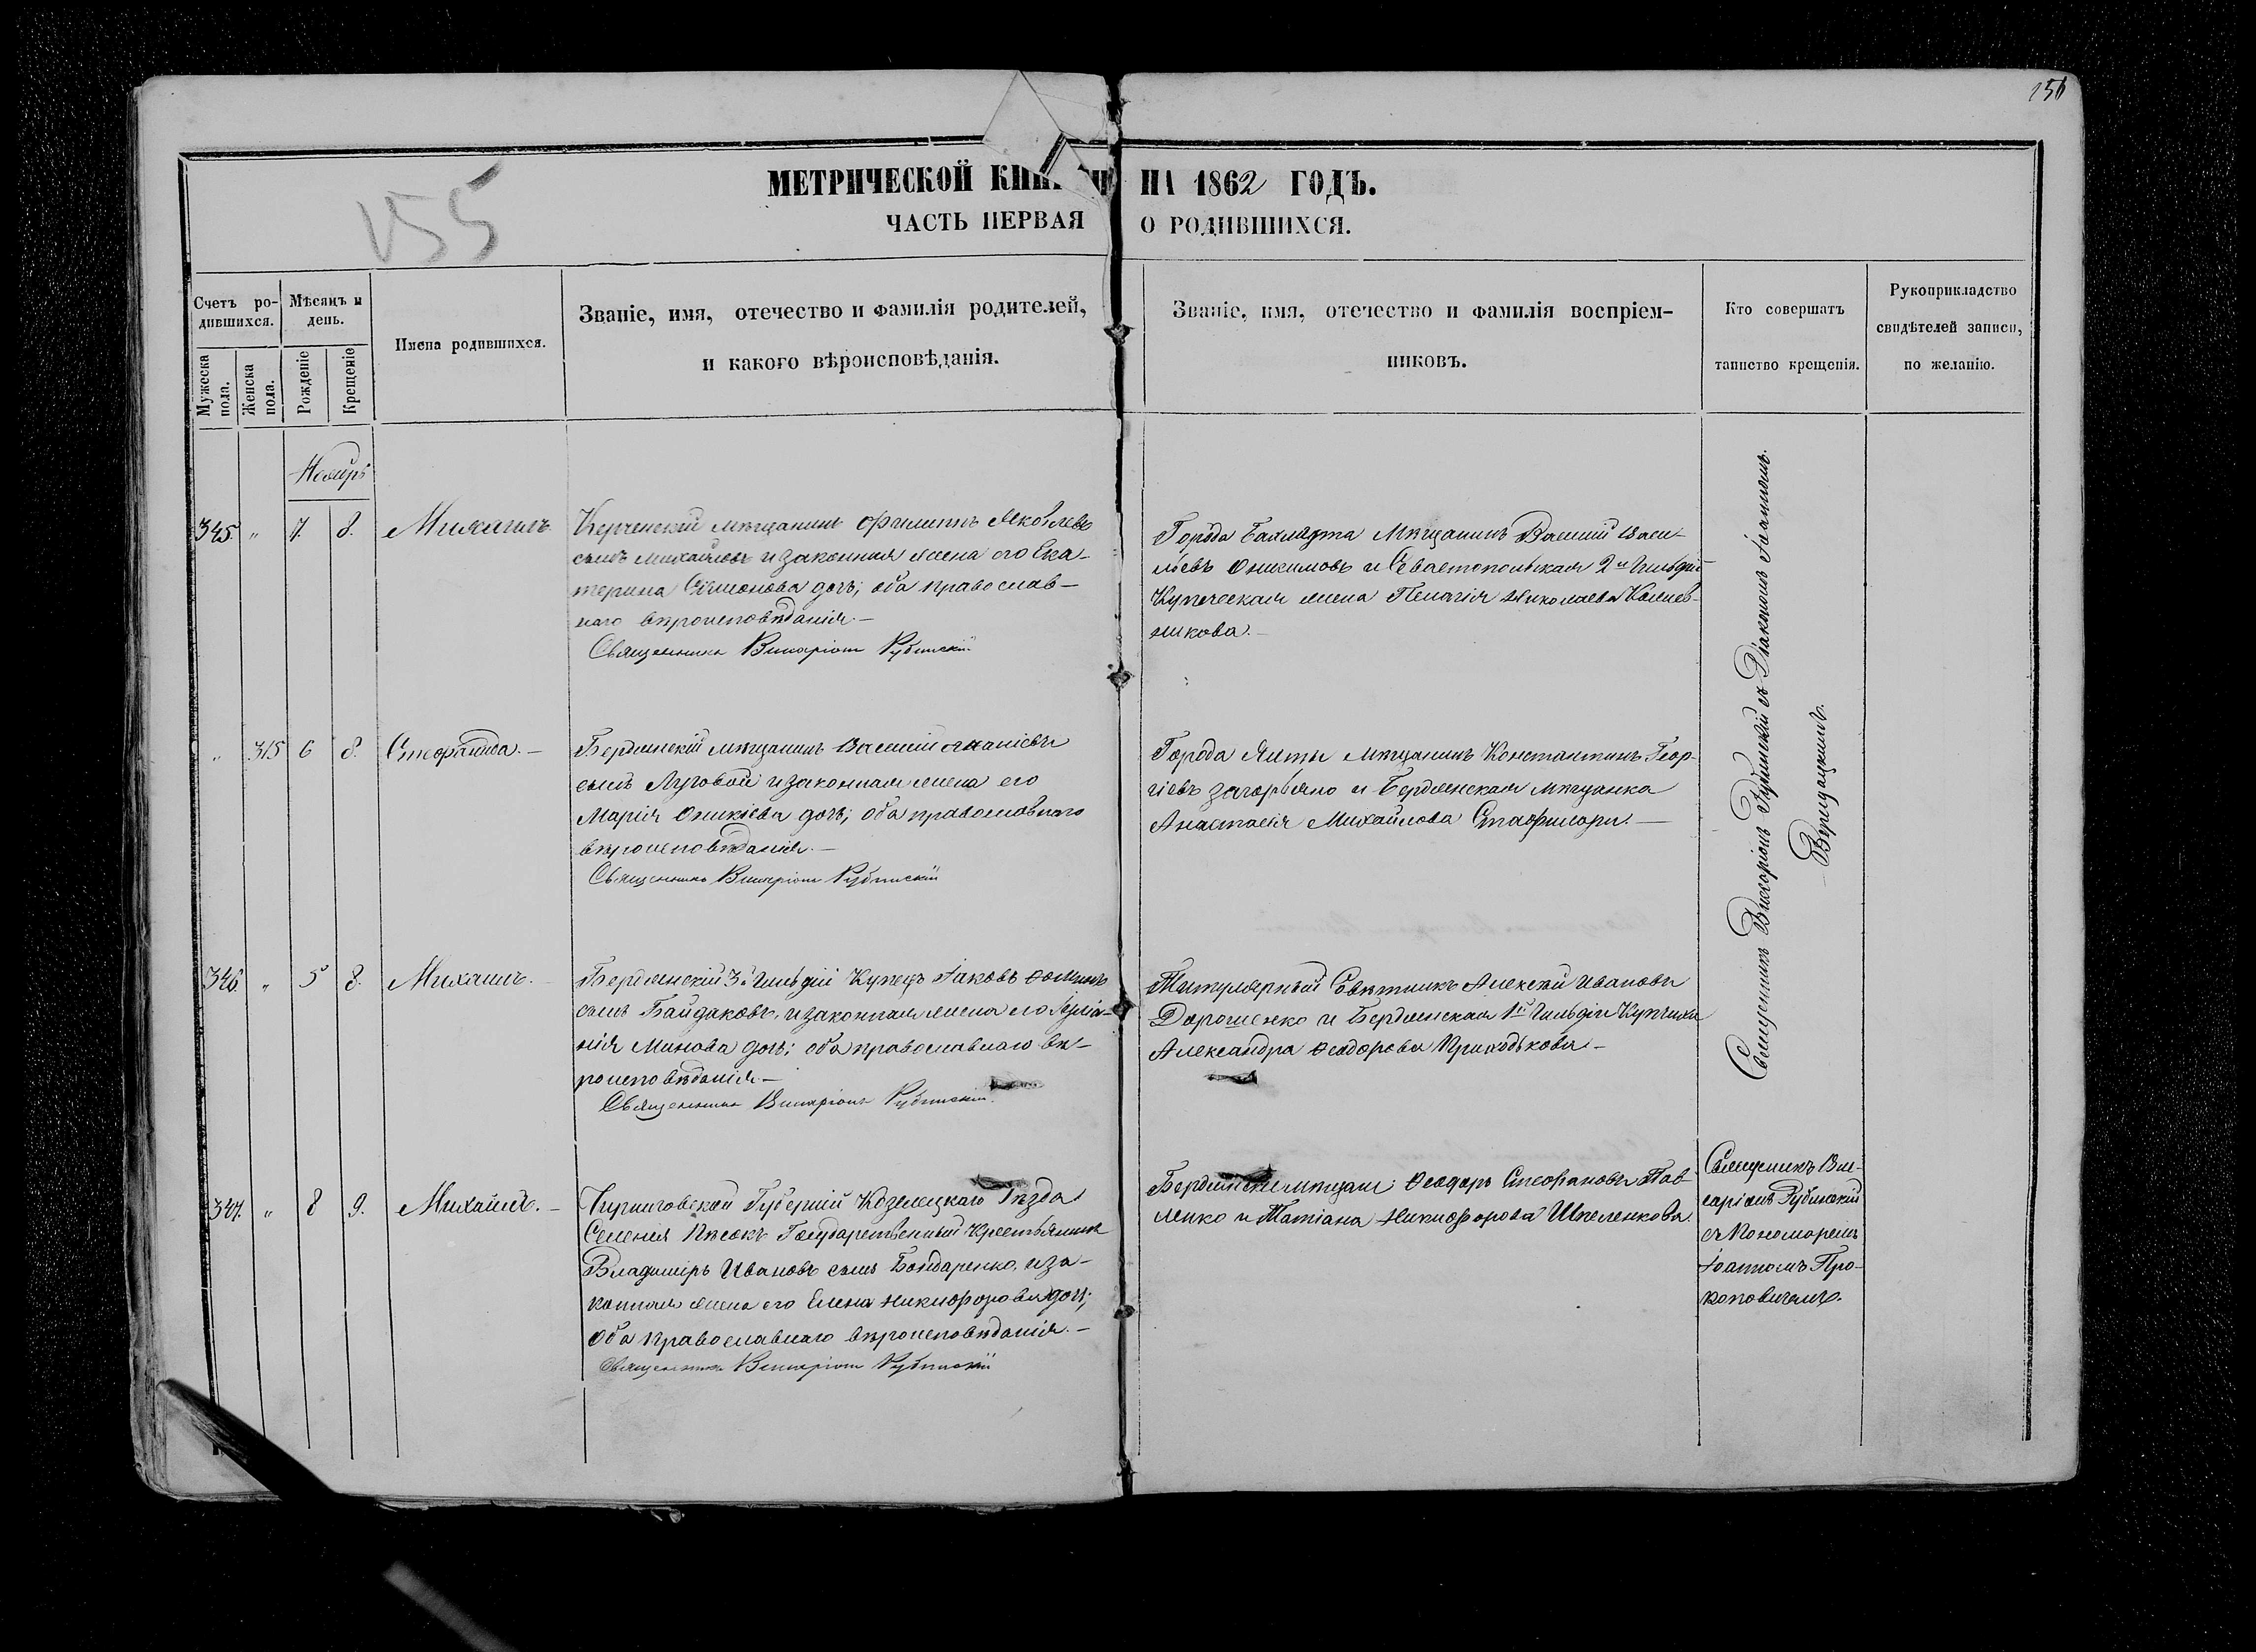 156
155
МЕТРИЧЕСКОЙ КНИГИ НА 1862 ГОДЪ.
ЧАСТЬ ПЕРВАЯ О РОДИВШИХСЯ.
Счетъ ро-
дившихся.
Мужеска пола.
Женска пола.
Мѣсяцъ и
день.
Рожденіе
Крещеніе
Имена родившихся.
Званіе, имя, отечество и фамилія родителей,
и какого вѣроисповѣданія.
Званіе, имя, отечество и фамилія воспріем-
никовъ.
Кто совершатъ
таинство крещенія.
Рукоприкладство
свидѣтелей записи,
по желанію.
Ноябрь
345. " 7. 8. Михаилъ
Керченскій мѣщанинъ Филиппъ Яковлевъ
сынъ Михайловъ и законная жена его Ека-
терина Симонова дочь; оба православ-
наго вѣроисповѣданія.—
Священникъ Виссаріонъ Рубинскій
Города Бахмута Мѣщанинъ Василій Васи-
льевъ Онисимовъ и Севастопольская 2й Гильдіи
Купеческая жена Пелагія Николаева
никова.—
" 315 6 8. Стефанида.—
Бердянскій мѣщанинъ Василій Ананіевъ
сынъ Луговой и законная жена его
Марія Оникіева дочь; оба православнаго
вѣроисповѣданія.—
Священникъ Виссаріонъ Рубинскій
Города Ялты Мѣщанинъ Константинъ Геор-
гіевъ и Бердянская мѣщанка
Анастасія Михайлова Стафилори.—
346. " 5 8. Михаилъ.
Бердянскій 3й Гильдіи Купецъ Іаковъ Ѳоминъ
сынъ Байдаковъ, и законная жена его
нія Минова дочь; оба православнаго вѣ-
роисповѣданія.—
Священникъ Виссаріонъ Рубинскій.
Титулярный Совѣтникъ Алексѣй Ивановъ
Дорошенко и Бердянская 1й Гильдіи Купчиха
Александра Ѳеодорова Приходькова.—
Священникъ Виссаріонъ Рубинскій съ Діакономъ Іоанномъ
Верицкимъ.
347. " 8 9. Михаилъ.—
Черниговской Губерніи Козелецкаго Уѣзда
Селенія Пѣсокъ Государственный Крестьянинъ
Владимиръ Ивановъ сынъ Бондаренко, и за-
конная жена его Елена Никифорова дочь;
оба православнаго вѣроисповѣданія.—
Священникъ Виссаріонъ Рубинскій
Бердянскіе мѣщане: Ѳеодоръ Стефановъ Пав-
ленко и Татіана Никифорова Шпеленкова.
Священникъ Вис-
саріонъ Рубинскій
съ Пономаремъ
Іоанномъ Про-
коповичемъ.